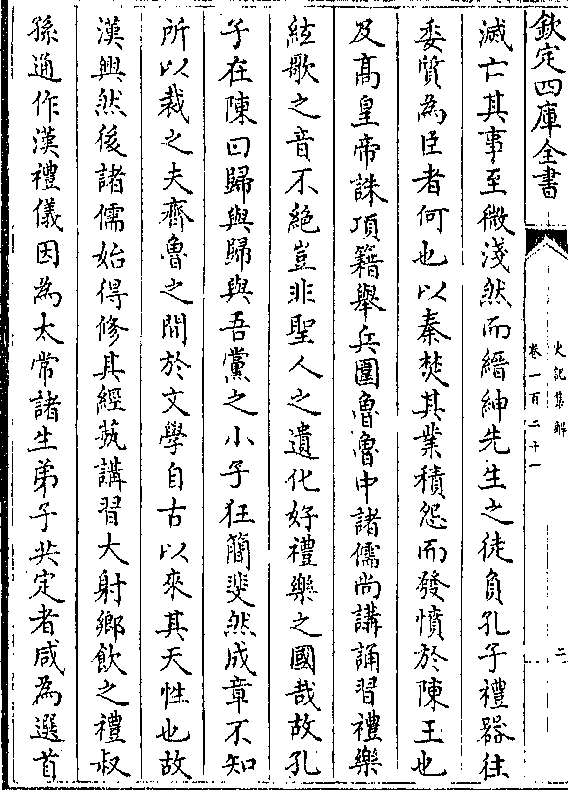 欽定四庫全書
史記集解
卷一百二十一
二
滅亡其事至微淺然而縉紳先生之徒負孔子禮器往
委質為臣者何也以秦焚其業積怨而發憤於陳王也
及髙皇帝誅項籍舉兵圍魯魯中諸儒尚講誦習禮樂
絃歌之音不絶豈非聖人之遺化好禮樂之國哉故孔
子在陳曰歸與歸與吾黨之小子狂簡斐然成章不知
所以裁之夫齊魯之間於文學自古以來其天性也故
漢興然後諸儒始得修其經藝講習大射鄉飲之禮叔
孫通作漢禮儀因為太常諸生弟子共定者咸為選首